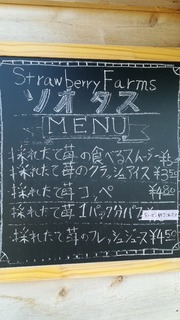 Strawberry Farms
ソオタス
MENU
採れたて苺の食べるスムージー
採れたて苺のクラッシュアイス ¥350
採れたて苺コッペ ¥480
採れたて苺1パック分パフェ
採れたて苺のフレッシュジュース ¥450